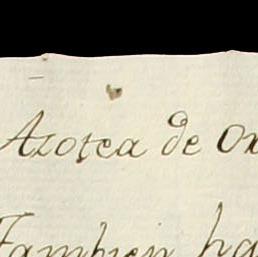 Azotea de Ox
Tambien ha